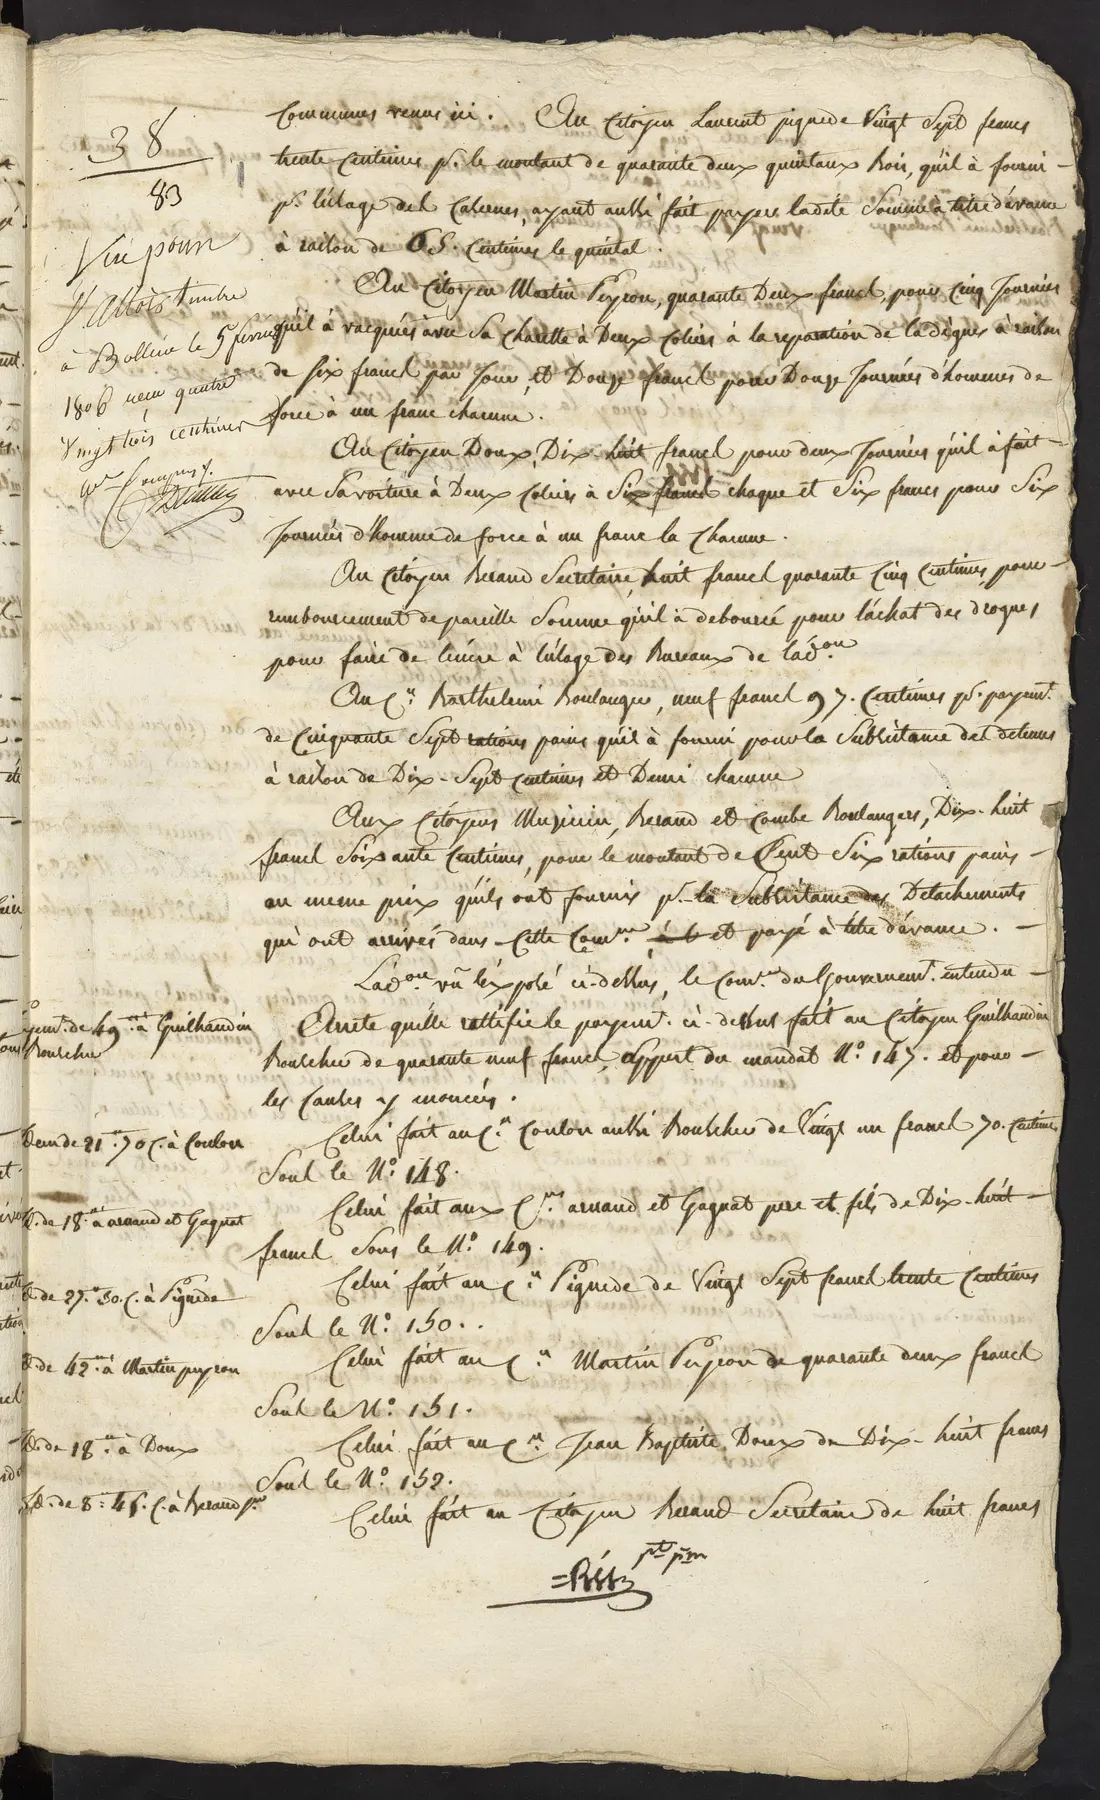 38
83
Vû pour
Timbre
à Bollène le 5 fevrier
1806 reçu quatre
Vingt trois centimes
Communes venus ici. Au Citoyen Laurent pignede Vingt Sept francs
trente Centimes pr. le montant de quarante deux quintaux Bois, qu'il à fourni
pr. l'usage des Casernes, ayant aussi fait payer ladite Somme à titre d'avance
à raison de 65. Centimes le quintal.
Au Citoyen Martin Peyron, quarante Deux francs, pour Cinq Journées
qu'il à vacquées avec Sa Charette à Deux Coliers à la reparation de la digue à raison
de Six francs par Jour, et Douze francs pour Douze Journées d'hommes de
force à un franc chacune.
Au Citoyen Doux, Dix-huit francs pour deux Journées qu'il à fait
avec Sa voiture à Deux Coliers à Six francs chaque et Six francs pour Six
Journées d'homme de force à un franc la Chacune.
Au Citoyen Beraud Secretaire, huit francs quarante Cinq Centimes, pour
remboursement de pareille Somme qu'il à deboursé pour l'achat des drogues
pour faire de l'encre à l'usage des Bureaux de l'adon.
Au Cn. Barthelemi Boulanger, neuf francs 97. Centimes pr. payemt.
de Cinquante Sept rations pains qu'il à fourni pour la Subsistance des detenus
à raison de Dix-Sept Centimes et Demi chacune
Aux Citoyens Beraud et Combe Boulangers, Dix-huit
francs Soixante Centimes, pour le montant de Cent Six rations pains
au meme prix qu'ils ont fournis pr. la Subsistance des Detachements
qui ont arrivés dans Cette Comne. et payé à titre d'avance.
L'adon. vû l'exposé ci-dessus, le Comre. du Gouvernemt. entendu
Arrete qu'elle rattifie le payemt. ci-dessus fait au Citoyen Guilhaudin
Boucher de quarante neuf francs, appert du mandat N.o 147. et pour
les Causes y énoncées.
Celui fait au Cn. Coulon aussi Boucher de Vingt un francs 70. Centimes
Sous le N.o 148.
Celui fait aux Cns. arnaud et Gagnat pere et fils de Dix-huit
francs Sous le N.o 149.
Celui fait au Cn. Pignede de Vingt Sept francs trente Centimes
Sous le N.o 150.
Celui fait au Cn. Martin Peyron de quarante deux francs
Sous le N.o 151.
Celui fait au Cn. Jean Baptiste Doux de Dix-huit francs
Sous le N.o 152.
Celui fait au Citoyen Beraud Secretaire de huit francs
payemt. de 49 à Guilhaudin
Boucher
Idem de 21 70 C. à Coulon
Id. de 18 à arnaud et Gagnat
Id. de 27. 30. C. à Pignede
Id. de 42 à Martin peyron
Id. de 18 à Doux
Id. de 8. 45. C. à Beraud